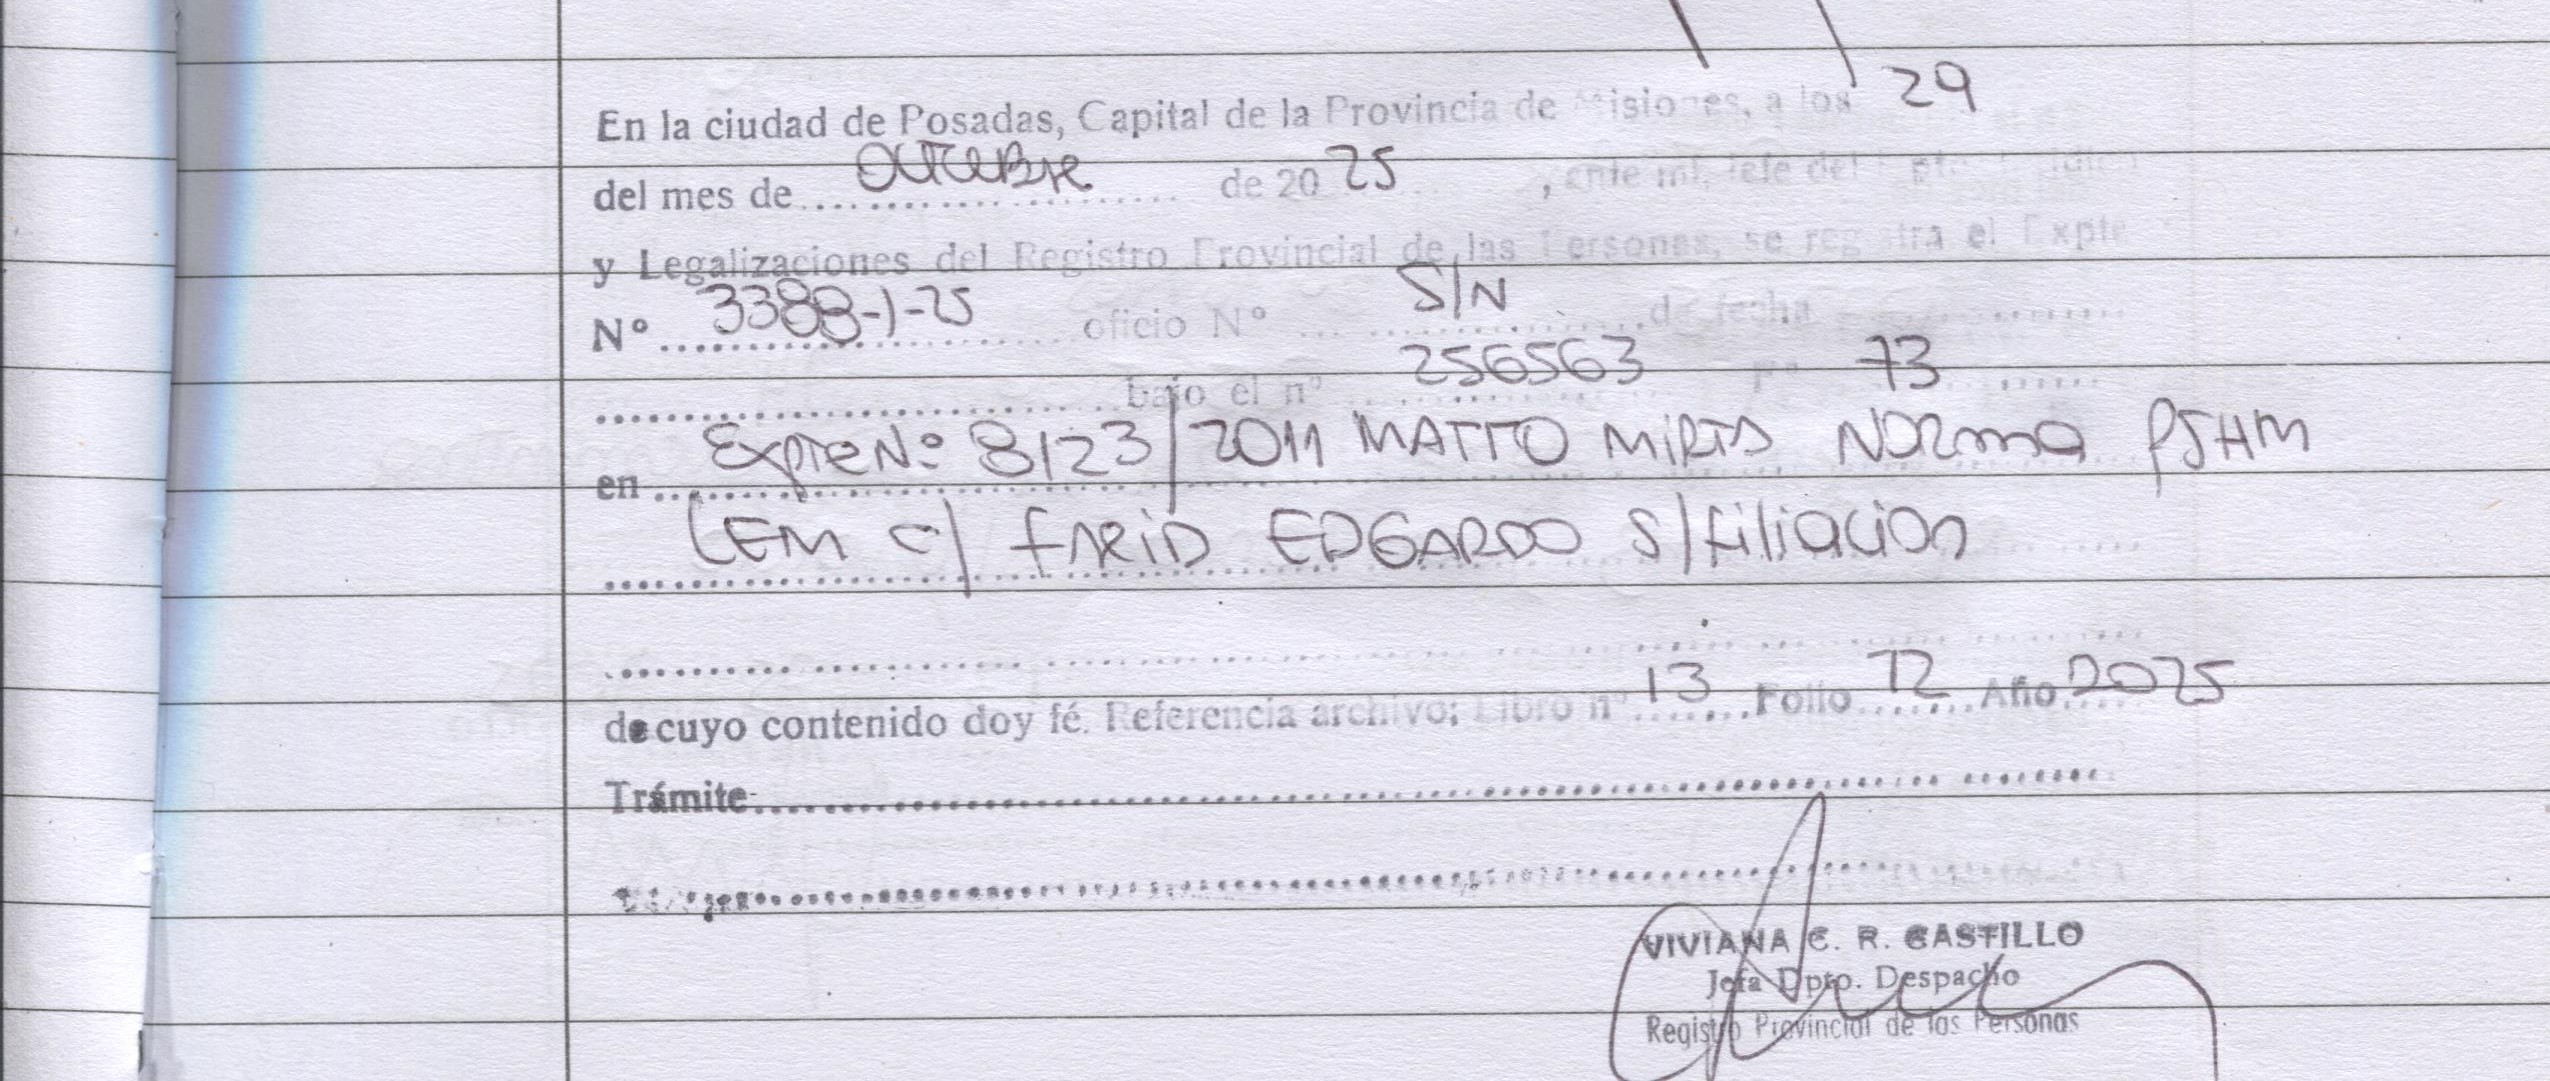 29
En la ciudad de Posadas, Capital de la Provincia de Misiones, a los
del mes de Octubre de 20 25 , ante mi, Jefe del
y Legalizaciones del Registro Provincial de las Personas, se registra el Expte
Nº 3388-1-25 oficio Nº S/N de fecha
bajo el nº 256563 Fº 73
en Expte Nº 8123/2011 MATTO MIRTA NORMA PSHM
LEM c/ FARID EDGARDO S/filiacion
de cuyo contenido doy fé. Referencia archivo; Libro nº 13 Folio 72 Año 2025
Trámite
VIVIANA C. R. CASTILLO
Jefa Dpto. Despacho
Registro Provincial de las Personas